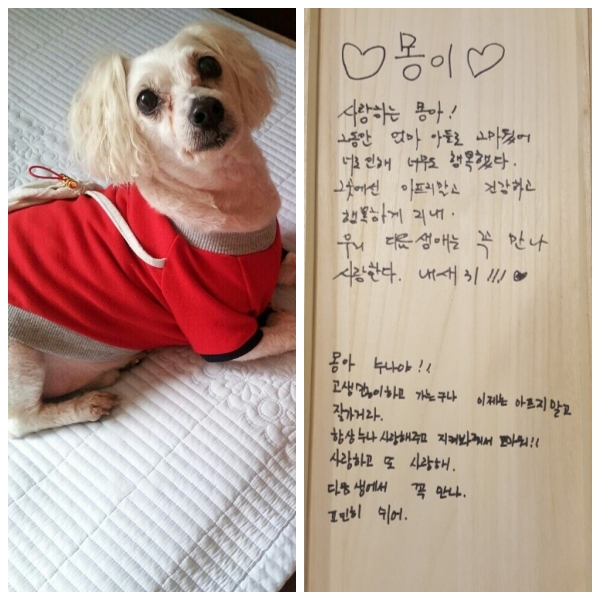 ♡ 몽이 ♡
사랑하는 몽아!
그동안 엄마 아들로 고마웠어
너로 인해 너무도 행복했다.
그곳에선 아프지말고 건강하고
행복하게 지내.
우리 다음생에는 꼭 만나
사랑한다. 내새끼!!! ♥
몽아 누나야!!
고생많이하고 가는구나 이제는 아프지말고
잘가거라.
항상 누나 사랑해주고 지켜봐줘서 고마워!!
사랑하고 또 사랑해.
다음생에서 꼭 만나.
편히 쉬어.